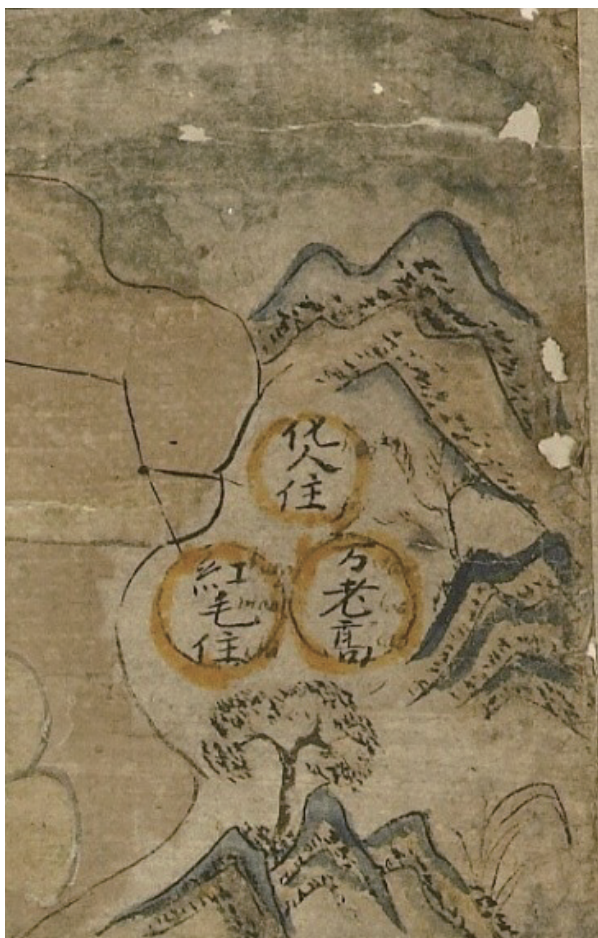 化人住
红毛住
万老高